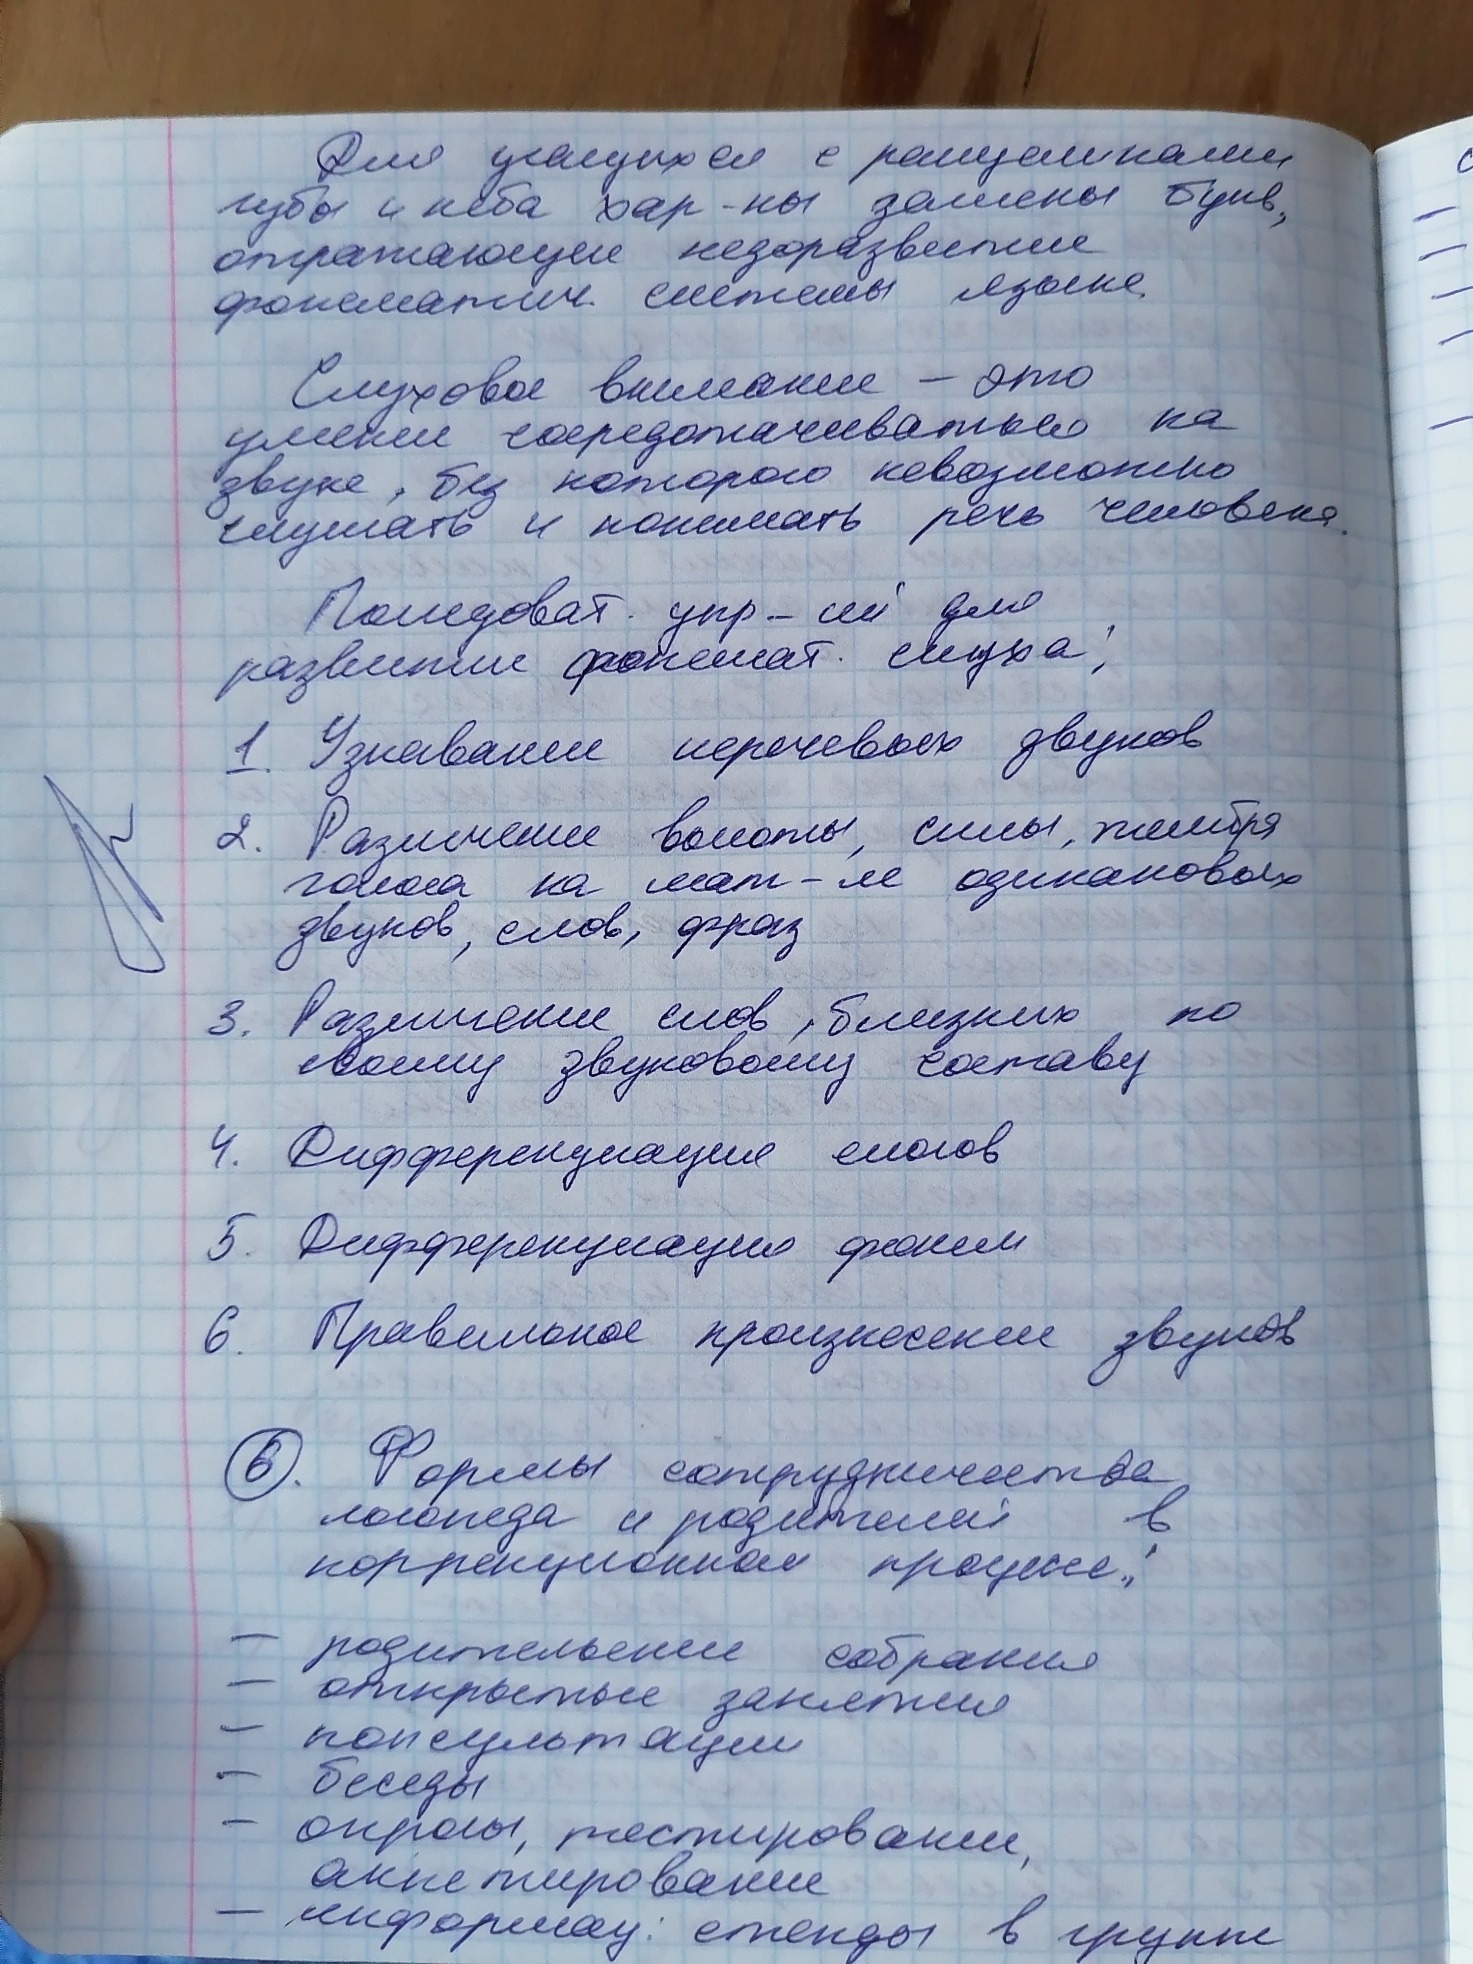 Для учащихся с расщелинами
губы и неба хар-ны замены букв,
отражающие недоразвитие
фонематич. системы языка.
Слуховое внимание – это
умение сосредотачиваться на
звуке, без которого невозможно
слушать и понимать речь человека.
Последоват. упр-ий для
развития фонемат. слуха:
1. Узнавание неречевых звуков
2. Различение высоты, силы, тембра
голоса на мат-ле одинаковых
звуков, слов, фраз
3. Различение слов, близких по
своему звуковому составу
4. Дифференциация слогов
5. Дифференциация фонем
6. Правильное произнесение звуков
6. Формы сотрудничества
логопеда и родителей в
коррекционном процессе:
– родительские собрания
– открытые занятия
– консультации
– беседы
– опросы, тестирование,
анкетирование
– информац: стенды в группе